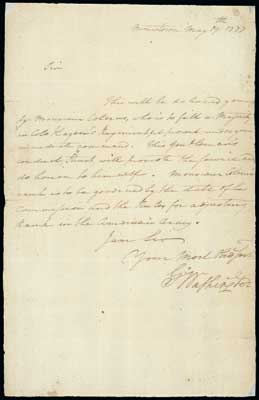 Morristown May 9th 1777
Sir
This will be delivered you
by Monsieur Colerus, who is to fill a Majority
in Colo Hazen's Regiment & proceed under your
immediate command. This Gentleman's
conduct I trust will promote the service and
do honor to himself. Monsieur Colerus
rank is to be governed by the date of his
Commission and the Rules for adjusting
Rank in the American Army.
I am Sir
Your Most Obedt
Go Washington